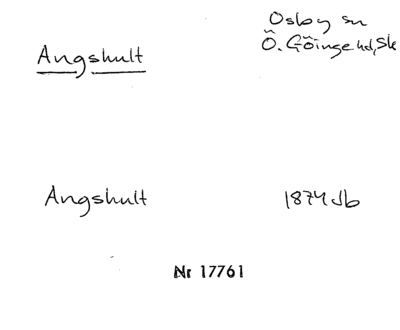 Osby sn
Angshult
Ö. Göinge hd, Sk
Angshult
1874 Jb
Nr 17761